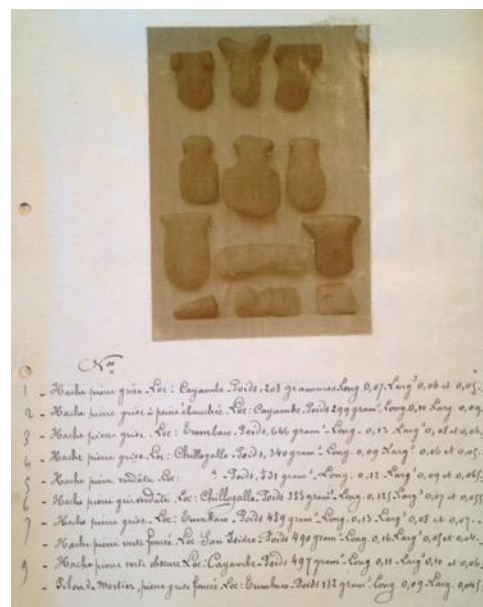 Nos
1 - Hache pierre grise. Loc: Cayambe. Poids, 208 grammes. Long. 0,07. Larg. 0,06 et 0,05.
2 - Hache pierre grise à peine ébauchée. Loc: Cayambe. Poids 299 gram. Long. 0,10. Larg. 0,09.
3 - Hache pierre grise. Loc: Poids, 646 gram. Long. 0,13. Larg. 0,08 et 0,06.
4 - Hache pierre grise. Loc: Chillogallo. Poids, 340 gram. Long. 0,09. Larg. 0,06 et 0,05.
5 - Hache pierre verdâtre. Loc: ? - Poids, 531 gram. Long. 0,12. Larg. 0,09 et 0,065.
6 - Hache pierre gris verdâtre. Loc: Chillogallo. Poids 355 gram. Long. 0,125. Larg. 0,07 et 0,055
7 - Hache pierre grise. Loc: Poids 459 gram. Long. 0,13. Larg. 0,08 et 0,07.
- Hache pierre verte foncée. Loc: San Isidro. Poids 490 gram. Long. 0,16. Larg. 0,05 et 0,04.
9 - Hache pierre verte obscure. Loc: Cayambe. Poids 497 gram. Long. 0,11. Larg. 0,10 et 0,06
- Pilon de Mortier, pierre grise foncée. Loc: Poids 132 gram. Long. 0,09. Larg. 0,045.